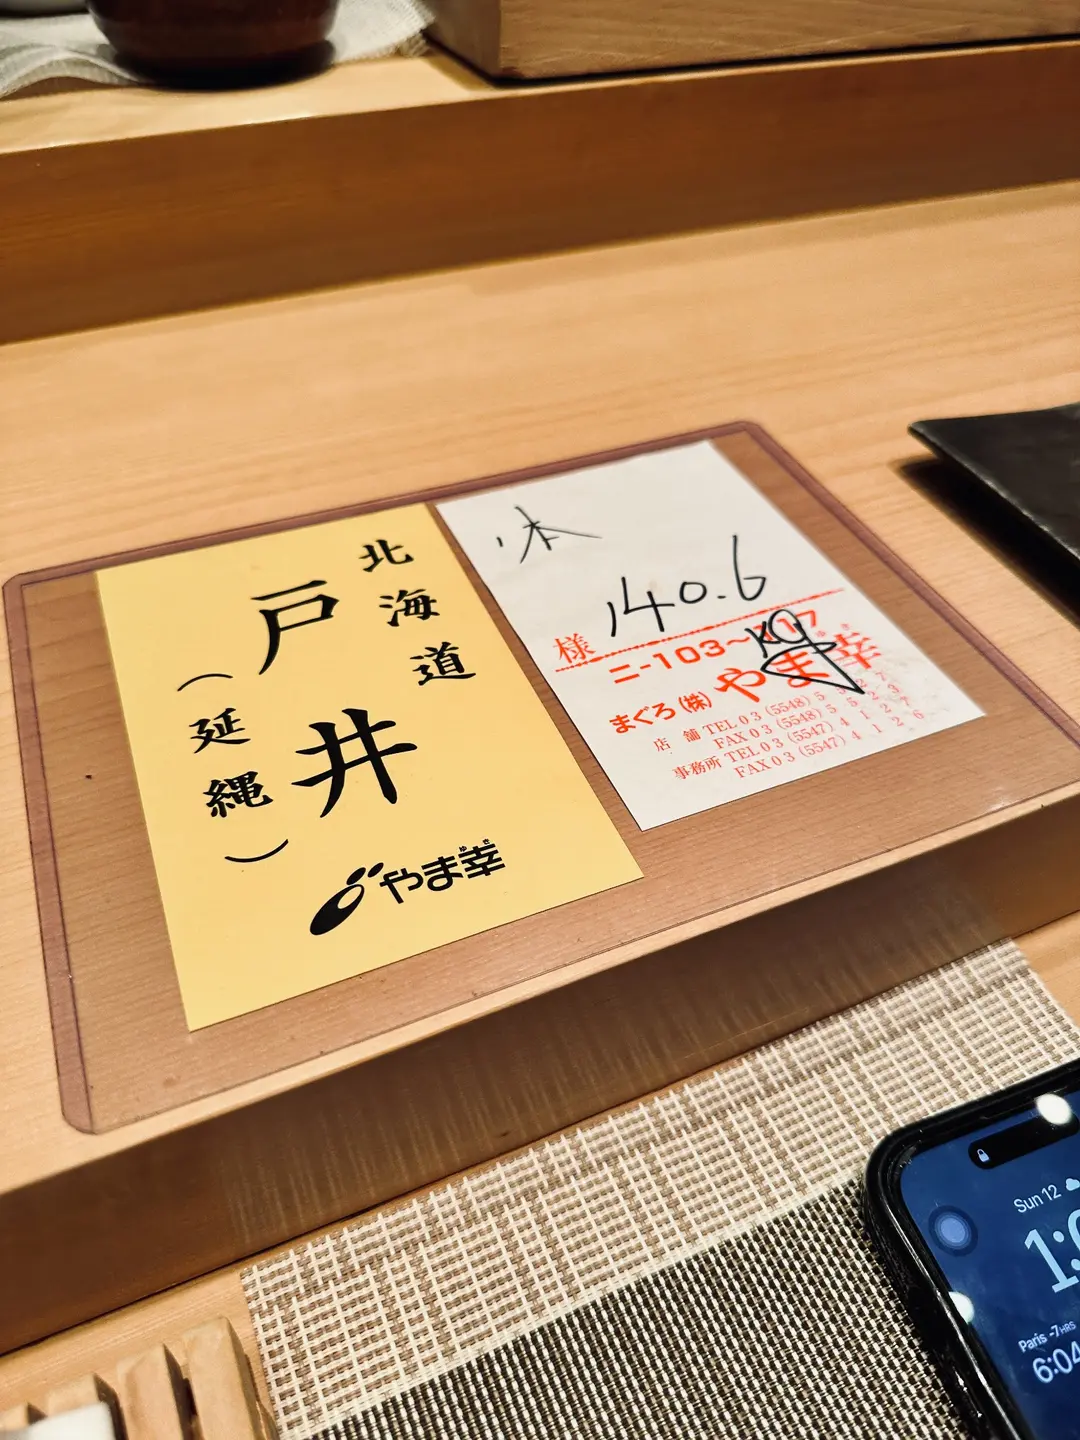 北海道
戸井
（延縄）
やま幸
ゆき
本
140.6
KG
様
ニ-103~
まぐろ(株) やま幸
店舗 TEL03(5548)5527
FAX03(5548)5523
事務所 TEL03(5547)4127
FAX03(5547)4126
Sun 12
Paris -7HRS
6:04